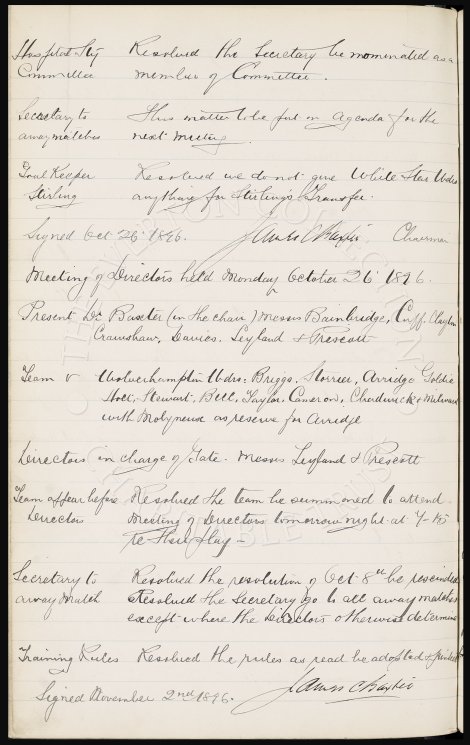 Hospital Sty Resolved the Secretary be nominated as a
Committee member of Committee.
Secretary to This matter to be put on Agenda for the
away matches next meeting
Goal Keeper Resolved we do not give White Star Wdrs
Stirling anything for Stirling's Transfer.
Signed Oct 26th 1896. James C Baxter Chairman
Meeting of Directors held Monday October 26th 1896.
Present Dr Baxter (in the chair) Messrs Bainbridge, Cuff, Clayton
Crawshaw, Davies, Leyland & Prescott
Team v Wolverhampton Wdrs: Briggs, Storrier, Arridge Goldie
Holt, Stewart, Bell, Taylor, Cameron, Chadwick & Milward
with Molyneux as reserve for Arridge
Directors in charge of Gate. Messrs Leyland & Prescott
Team appear before Resolved the team be summoned to attend
Directors Meeting of Directors tomorrow night at 7-15
re their play -
Secretary to Resolved the resolution of Oct 8th be rescinded
away match Resolved the Secretary go to all away matches
except where the Directors otherwise determine
Training Rules Resolved the rules as read be adopted & printed
Signed November 2nd 1896. James C Baxter